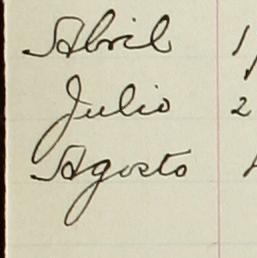 Abril 1
Julio 2
Agosto